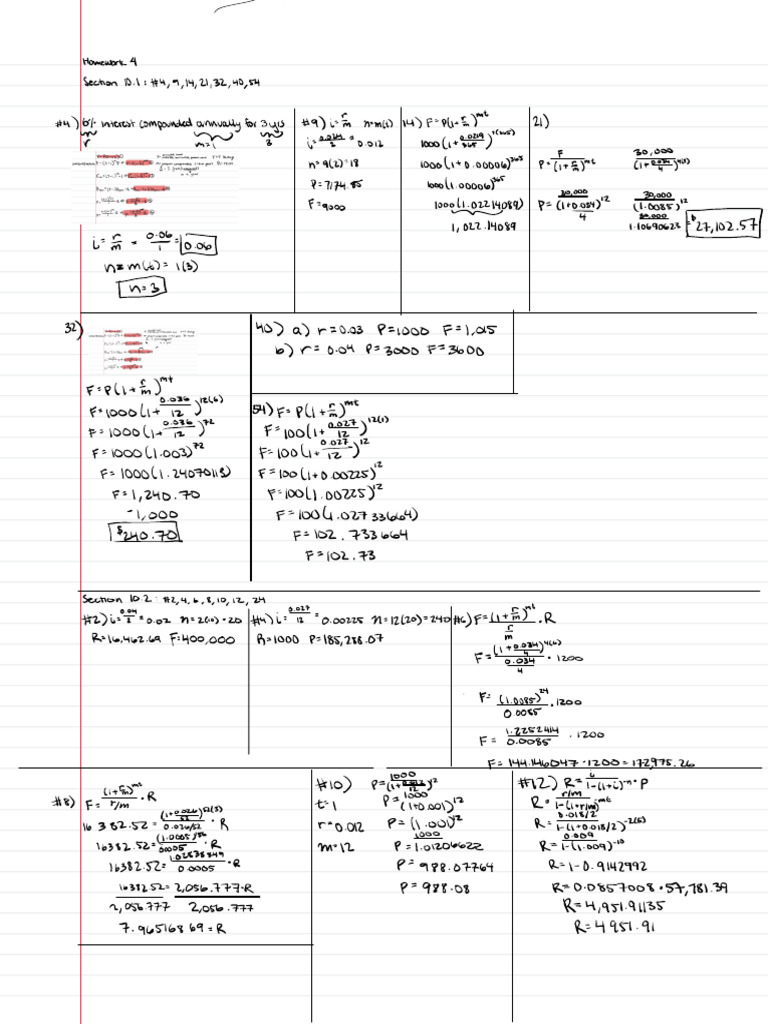 Homework 4
Section 10.1: #4, 9, 14, 21, 32, 40, 54
#4) 6% interest compounded annually for 3 yrs
r m=1 3
i = r/m = 0.06/1 = 0.06
n = m(t) = 1(3)
n=3
#9) i = r/m n=m(t)
i = 0.024/2 = 0.012
n = 9(2) = 18
P = 7174.85
F = 9000
14) F = P(1+r/m)^mt
1000(1+0.0219/365)^1(365)
1000(1+0.00006)^365
1000(1.00006)^365
1000(1.02214089)
1,022.14089
21)
P = F/(1+r/m)^mt 30,000/(1+0.034/4)^4(3)
P = 30,000/(1+0.034/4)^12 30,000/(1.0085)^12
30,000/1.10690623 $27,102.57
32)
F = P(1+r/m)^mt
F = 1000(1+0.036/12)^12(6)
F = 1000(1+0.036/12)^72
F = 1000(1.003)^72
F = 1000(1.24070113)
F = 1,240.70
-1,000
$240.70
40) a) r=0.03 P=1000 F=1,015
b) r=0.04 P=3000 F=3600
54) F = P(1+r/m)^mt
F = 100(1+0.027/12)^12(1)
F = 100(1+0.027/12)^12
F = 100(1+0.00225)^12
F = 100(1.00225)^12
F = 100(1.02733664)
F = 102.733664
F = 102.73
Section 10.2: #2, 4, 6, 8, 10, 12, 24
#2) i = 0.04/2 = 0.02 n = 2(10) = 20
R = 16,462.69 F = 400,000
#4) i = 0.027/12 = 0.00225 n = 12(20) = 240
R = 1000 P = 185,288.07
#6) F = (1+r/m)^mt/(r/m) · R
F = (1+0.034/4)^4(6)/(0.034/4) · 1200
F = (1.0085)^24/0.0085 · 1200
F = 1.2252414/0.0085 · 1200
F = 144.146047 · 1200 = 172,975.26
#8) F = (1+r/m)^mt/(r/m) · R
16382.52 = (1+0.026/52)^52(3)/(0.026/52) · R
16382.52 = (1.0005)^156/0.0005 · R
16382.52 = 1.02838849/0.0005 · R
16382.52 = 2,056.777 · R
2,056.777 2,056.777
7.96516869 = R
#10) P = 1000/(1+0.012/12)^12
t=1 P = 1000/(1+0.001)^12
r=0.012 P = (1.001)^12
m=12 P = 1000/1.01206622
P = 988.07764
P = 988.08
#12) R = i/1-(1+i)^-n · P
R = r/m/1-(1+r/m)^-mt
R = 0.018/2/1-(1+0.018/2)^-2(5)
R = 0.009/1-(1.009)^-10
R = 1-0.9142992
R = 0.0857008 · 57,781.39
R = 4,951.91135
R = 4951.91